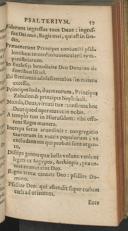 PSALTERIVM.
Viderunt ingressus tuos Deus: ingres-
sus Dei mei, Regis mei, qui est in san-
cto.
Prævenerunt Principes coniuncti psal-
lentibus: in medio iuvencularum tym-
panistriarum.
In Ecclesiis benedicite Deo Domino: de
fontibus Israel.
Ibi Beniamin adolescentulus: in mentis
excessu.
Principes Iuda, duces eorum, Principes
Zabulon & principes Nephthali.
Manda, Deus, virtuti tuæ: confirma hoc
Deus, quod operatus es in nobis.
A templo tuo in Hierusalem: tibi offe-
rent Reges munera.
Increpa feras arundinis: congregatio
taurorum in vaccis populorum: ut
excludant eos qui probati sunt argen-
to.
Dissipa gentes quæ bella volunt: venient
legati ex Aegypto, Aethiopia præve-
niet manus eius Deo.
Regna terræ cantate Deo: psallite Do-
mino.
Psallite Deo: qui ascendit super cælum
cæli ad orientem.
Ecce